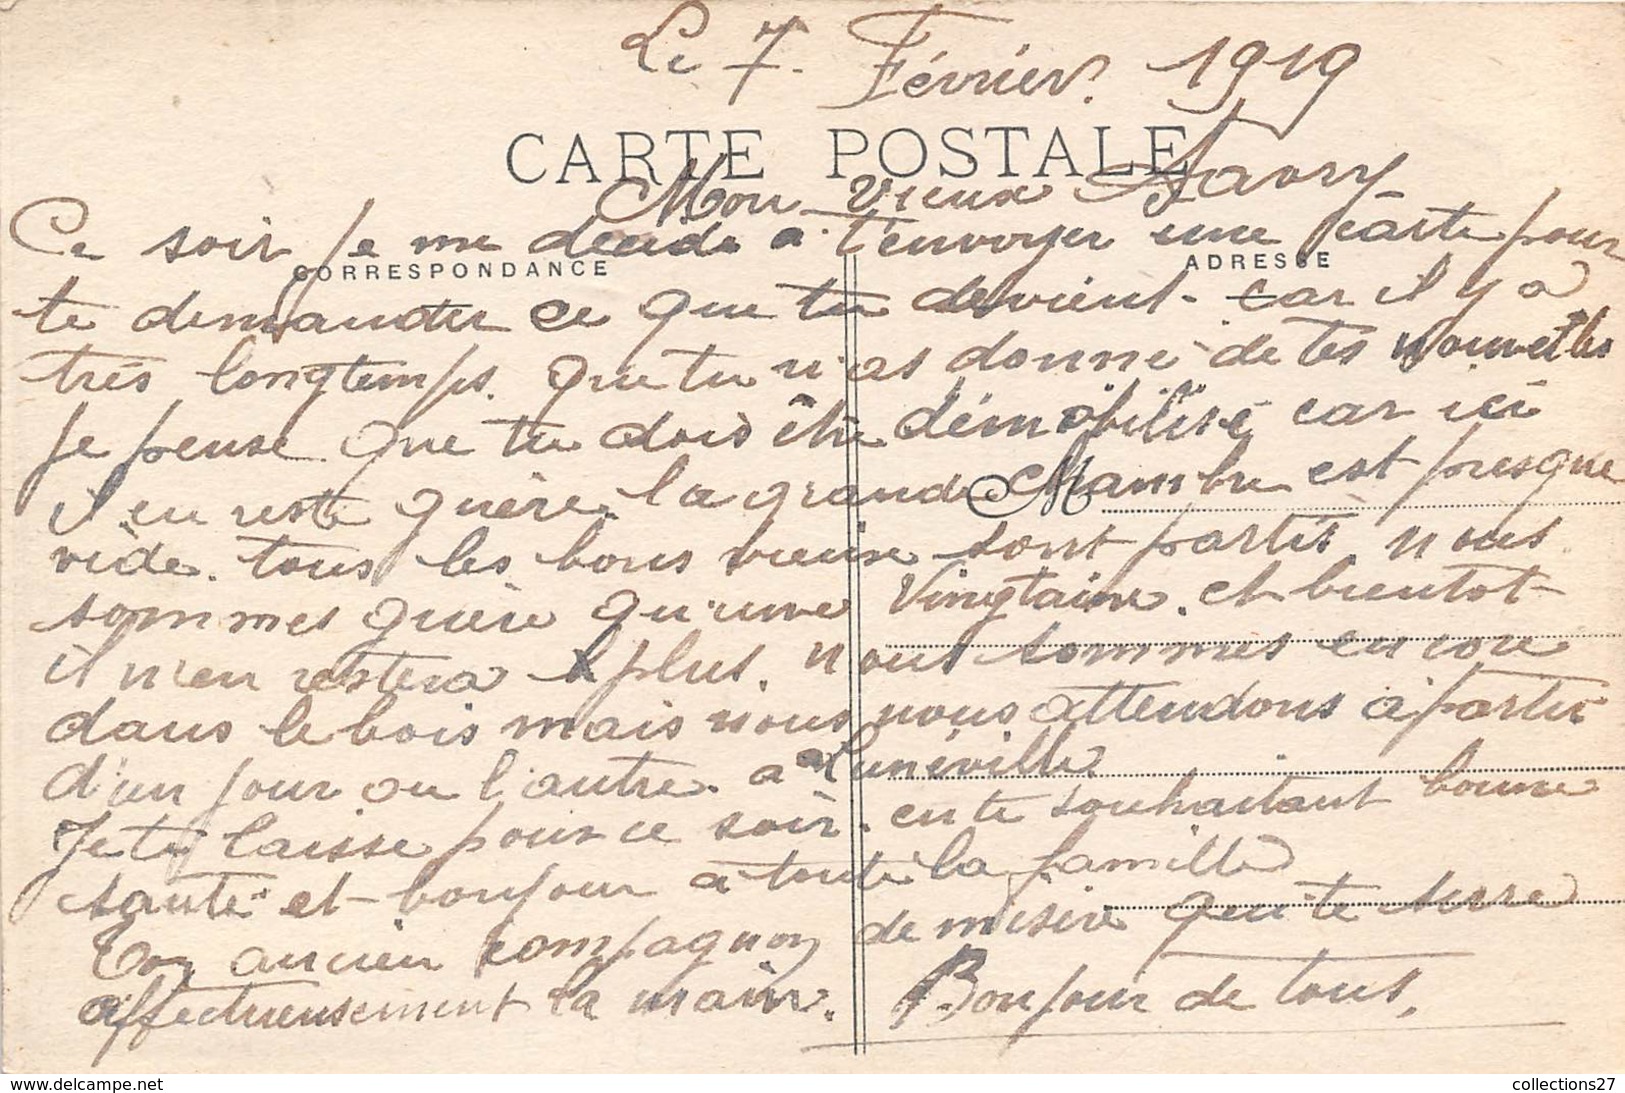 Le 7. Février. 1919
CARTE POSTALE
Mon vieux Savry
Ce soir je me decide a t'envoyer une carte pour
CORRESPONDANCE
ADRESSE
te demander ce que tu devient. car il y a
très longtemps. que tu n'as donné de tes nouvelles
je pense que tu dois être démobilisé car ici
il en reste guère. la grande Chambre est presque
M
vide. tous les bons vieux sont partis. nous
sommes guère qu'une vingtaine. et bientot
il n'en restera plus. nous sommes encore
dans le bois mais nous nous attendons à partir
d'un jour ou l'autre. a Lunéville
Je te laisse pour ce soir. en te souhaitant bonne
santé et bonjour à toute la famille
Ton ancien compagnon de misère qui te serre
affectueusement la main. Bonjour de tous.
www.delcampe.net
collections27